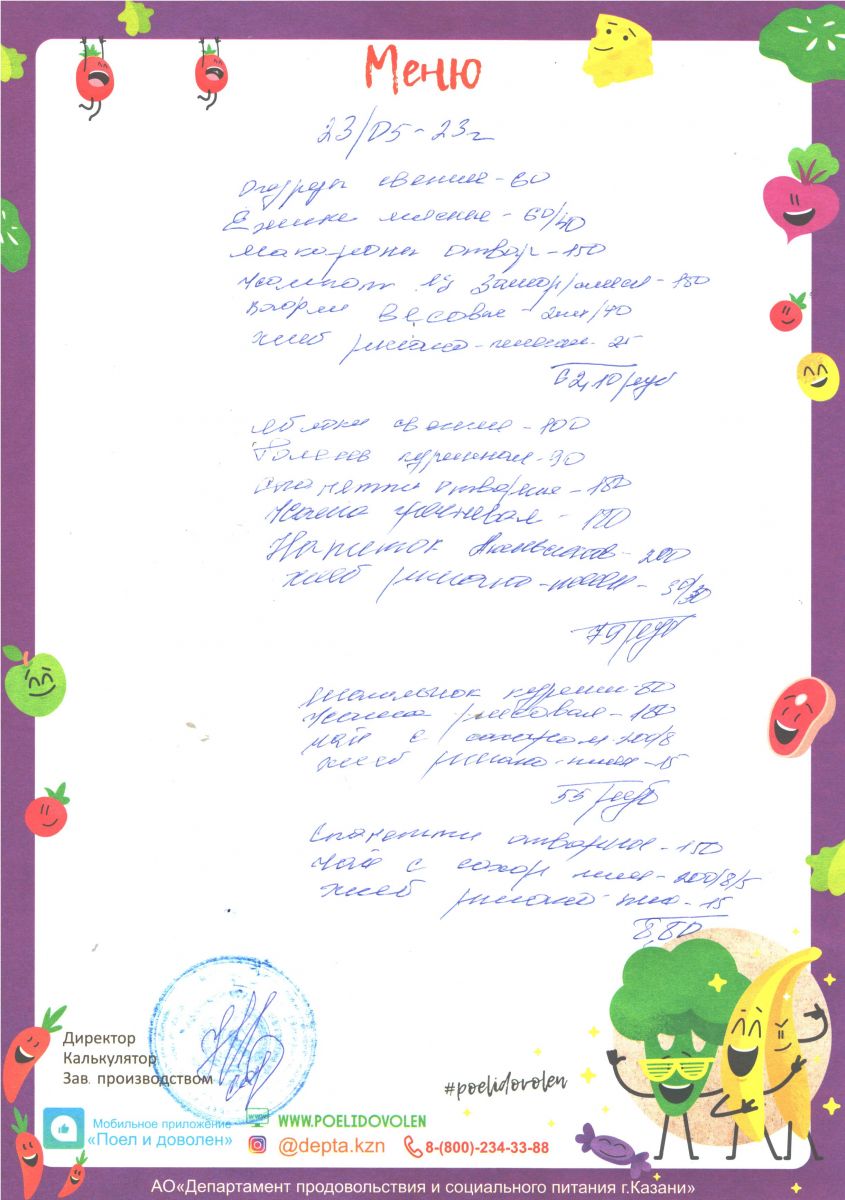 Меню
23/05-23г
Огурцы свежие - 60
Ёжики мясные - 60/40
макароны отвар - 150
Компот из замор/смеси - 180
Вафли весовые - 2шт/40
хлеб ржано-пшенич - 25
62,10 руб
яблоки свежие - 100
Голень куриная - 90
спагетти отварные - 180
Каша гречневая - 180
Напиток - 200
хлеб ржано-пшен - 30/30
79 руб
шашлычок курин - 80
Каша рисовая - 180
чай с сахаром - 200/8
хлеб ржано-пшен - 15
55 руб
Спагетти отварные - 150
чай с сахар лим - 200/8/5
хлеб ржано-пше - 15
8,80
Директор
Калькулятор
Зав. производством
#poelidovolen
Мобильное приложение
«Поел и доволен»
www
WWW.POELIDOVOLEN
@depta.kzn
8-(800)-234-33-88
АО«Департамент продовольствия и социального питания г.Казани»